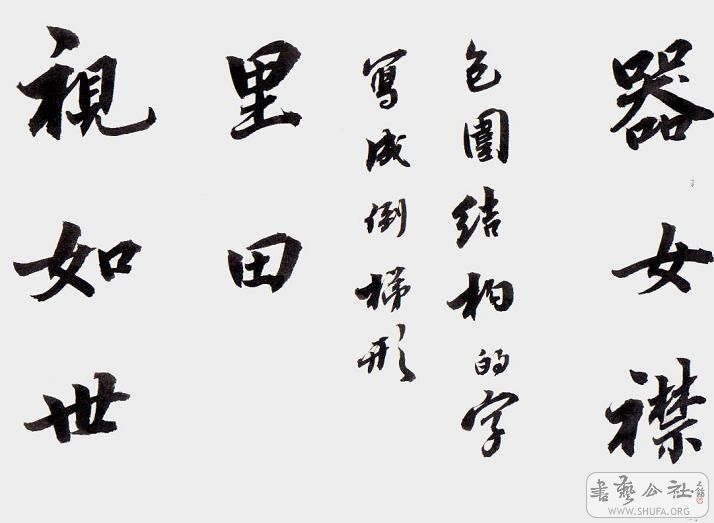 器女襟
包圍結构的字
寫成倒梯形
里田
視如世
書藝公社
WWW.SHUFA.ORG